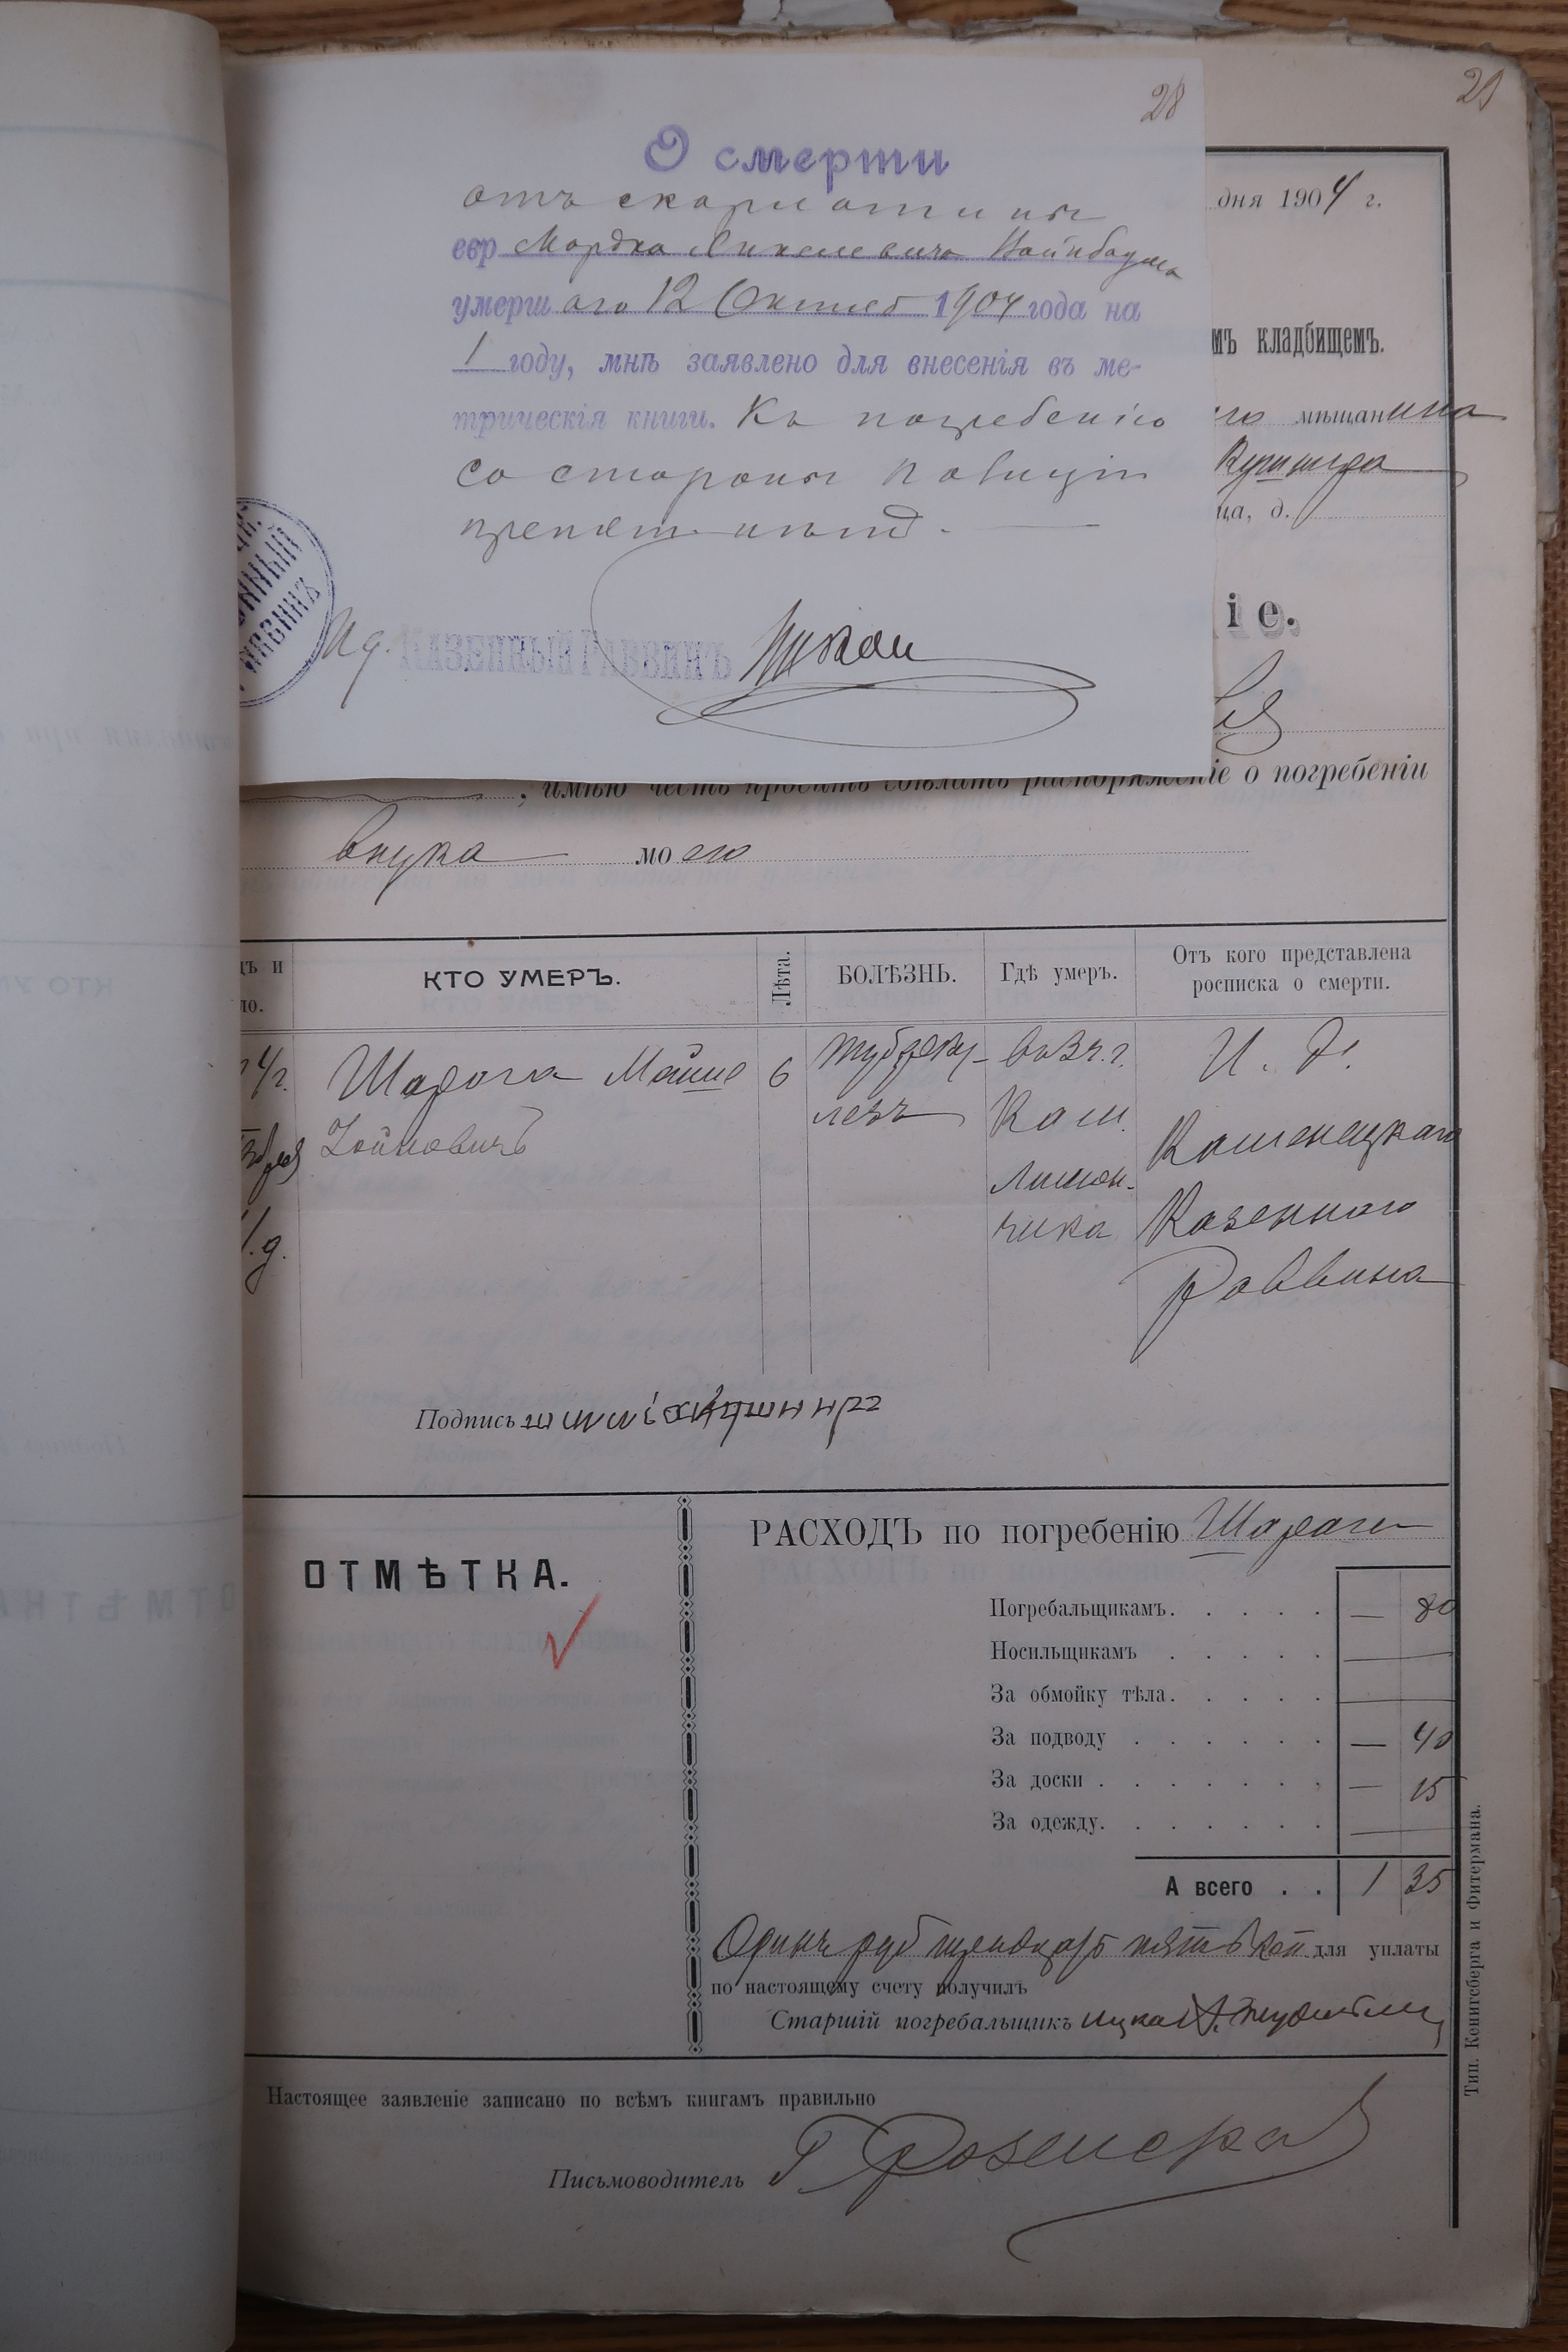 28
О смерти
отъ скарлатины
евр Мордка Вайнбаума
умерш аго 12 Октяб 1904 года на
1 году, мнѣ заявлено для внесенія въ ме-
трическія книги. Къ погребенію
со стороны полиціи
препят. нѣтъ.
Ид. КАЗЕННЫЙ РАВВИНЪ
29
дня 1904 г.
мъ кладбищемъ.
го мѣщанина
Кушнира
ца, д.
іе.
, имѣю честь просить сдѣлать распоряженіе о погребеніи
внука моего
ъ и
ло.
КТО УМЕРЪ.
Лѣта.
БОЛѢЗНЬ.
Гдѣ умеръ.
Отъ кого представлена
росписка о смерти.
4г.
Шарога Мойше
6
туберку-
лезъ
въ 3 ч. г.
Кам.
чика
И. д.
Каменецкаго
Казеннаго
Раввина
Подпись
ОТМѢТКА.
РАСХОДЪ по погребенію Шароги
Погребальщикамъ. — 80
Носильщикамъ —
За обмойку тѣла. —
За подводу — 40
За доски — 15
За одежду. —
А всего 1 35
Одинъ руб тридцать пять коп для уплаты
по настоящему счету получилъ
Старшій погребальщикъ Ицка
Настоящее заявленіе записано по всѣмъ книгамъ правильно
Письмоводитель
Тип. Кенигсберга и Фитермана.